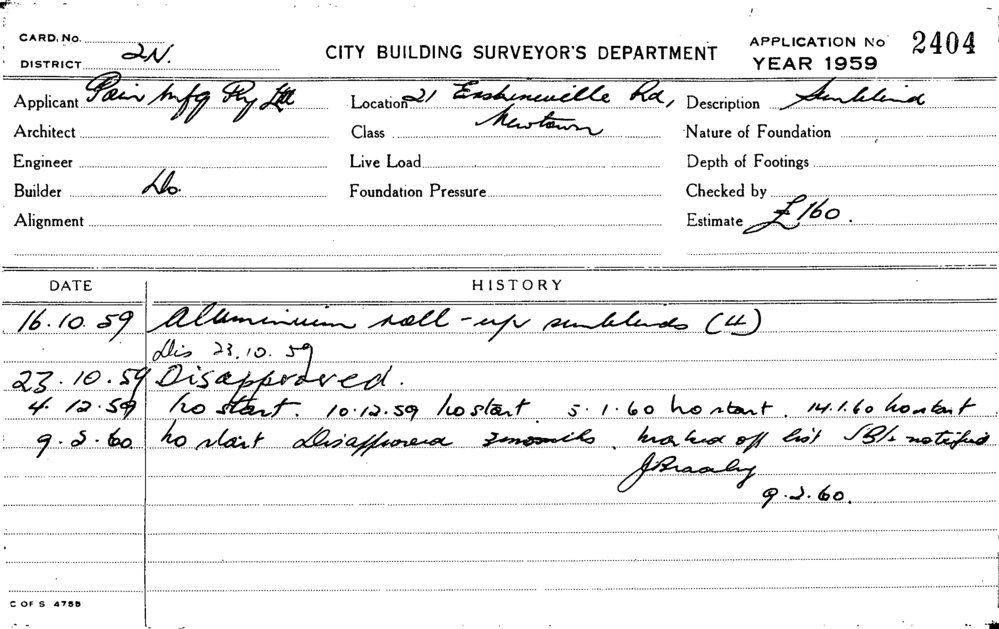 CARD. No.
DISTRICT 2N.
CITY BUILDING SURVEYOR'S DEPARTMENT
APPLICATION No 2404
YEAR 1959
Applicant Pty Ltd
Location 21 Erskineville Rd,
Newtown
Description Sunblind
Architect
Class
Nature of Foundation
Engineer
Live Load
Depth of Footings
Builder Do.
Foundation Pressure
Checked by
Alignment
Estimate £160.
DATE HISTORY
16.10.59 Aluminium roll-up sunblinds (4)
Dis 23.10.59
23.10.59 Disapproved.
4.12.59 no start. 10.12.59 no start 5.1.60 no start. 14.1.60 no start
9.2.60 no start Disapproved 3 months. marked off list notified
9.2.60.
C OF S 4755